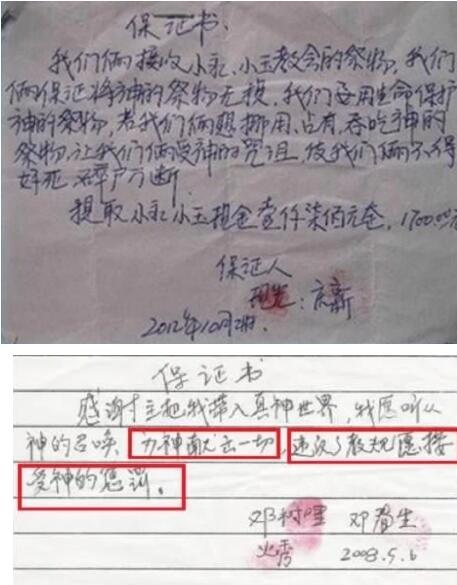 保证书.
我们俩接收小永、小玉教会的祭物,我们
俩保证将神的祭物无损,我们要用生命保护
神的祭物,若我们俩想挪用、占有、吞吃神的
祭物,让我们俩受神的咒诅,使我们俩不得
好死 碎尸万断.
提取小永 小玉现金壹仟柒佰元全, 1700.00元
保证人
庆新
2012年10月2
保证书
感谢主把我带入真神世界,我愿听从
神的召唤 为神献出一切,违反了教规愿接
受神的惩罚。
邓树 邓春生
火秀 2008.5.6